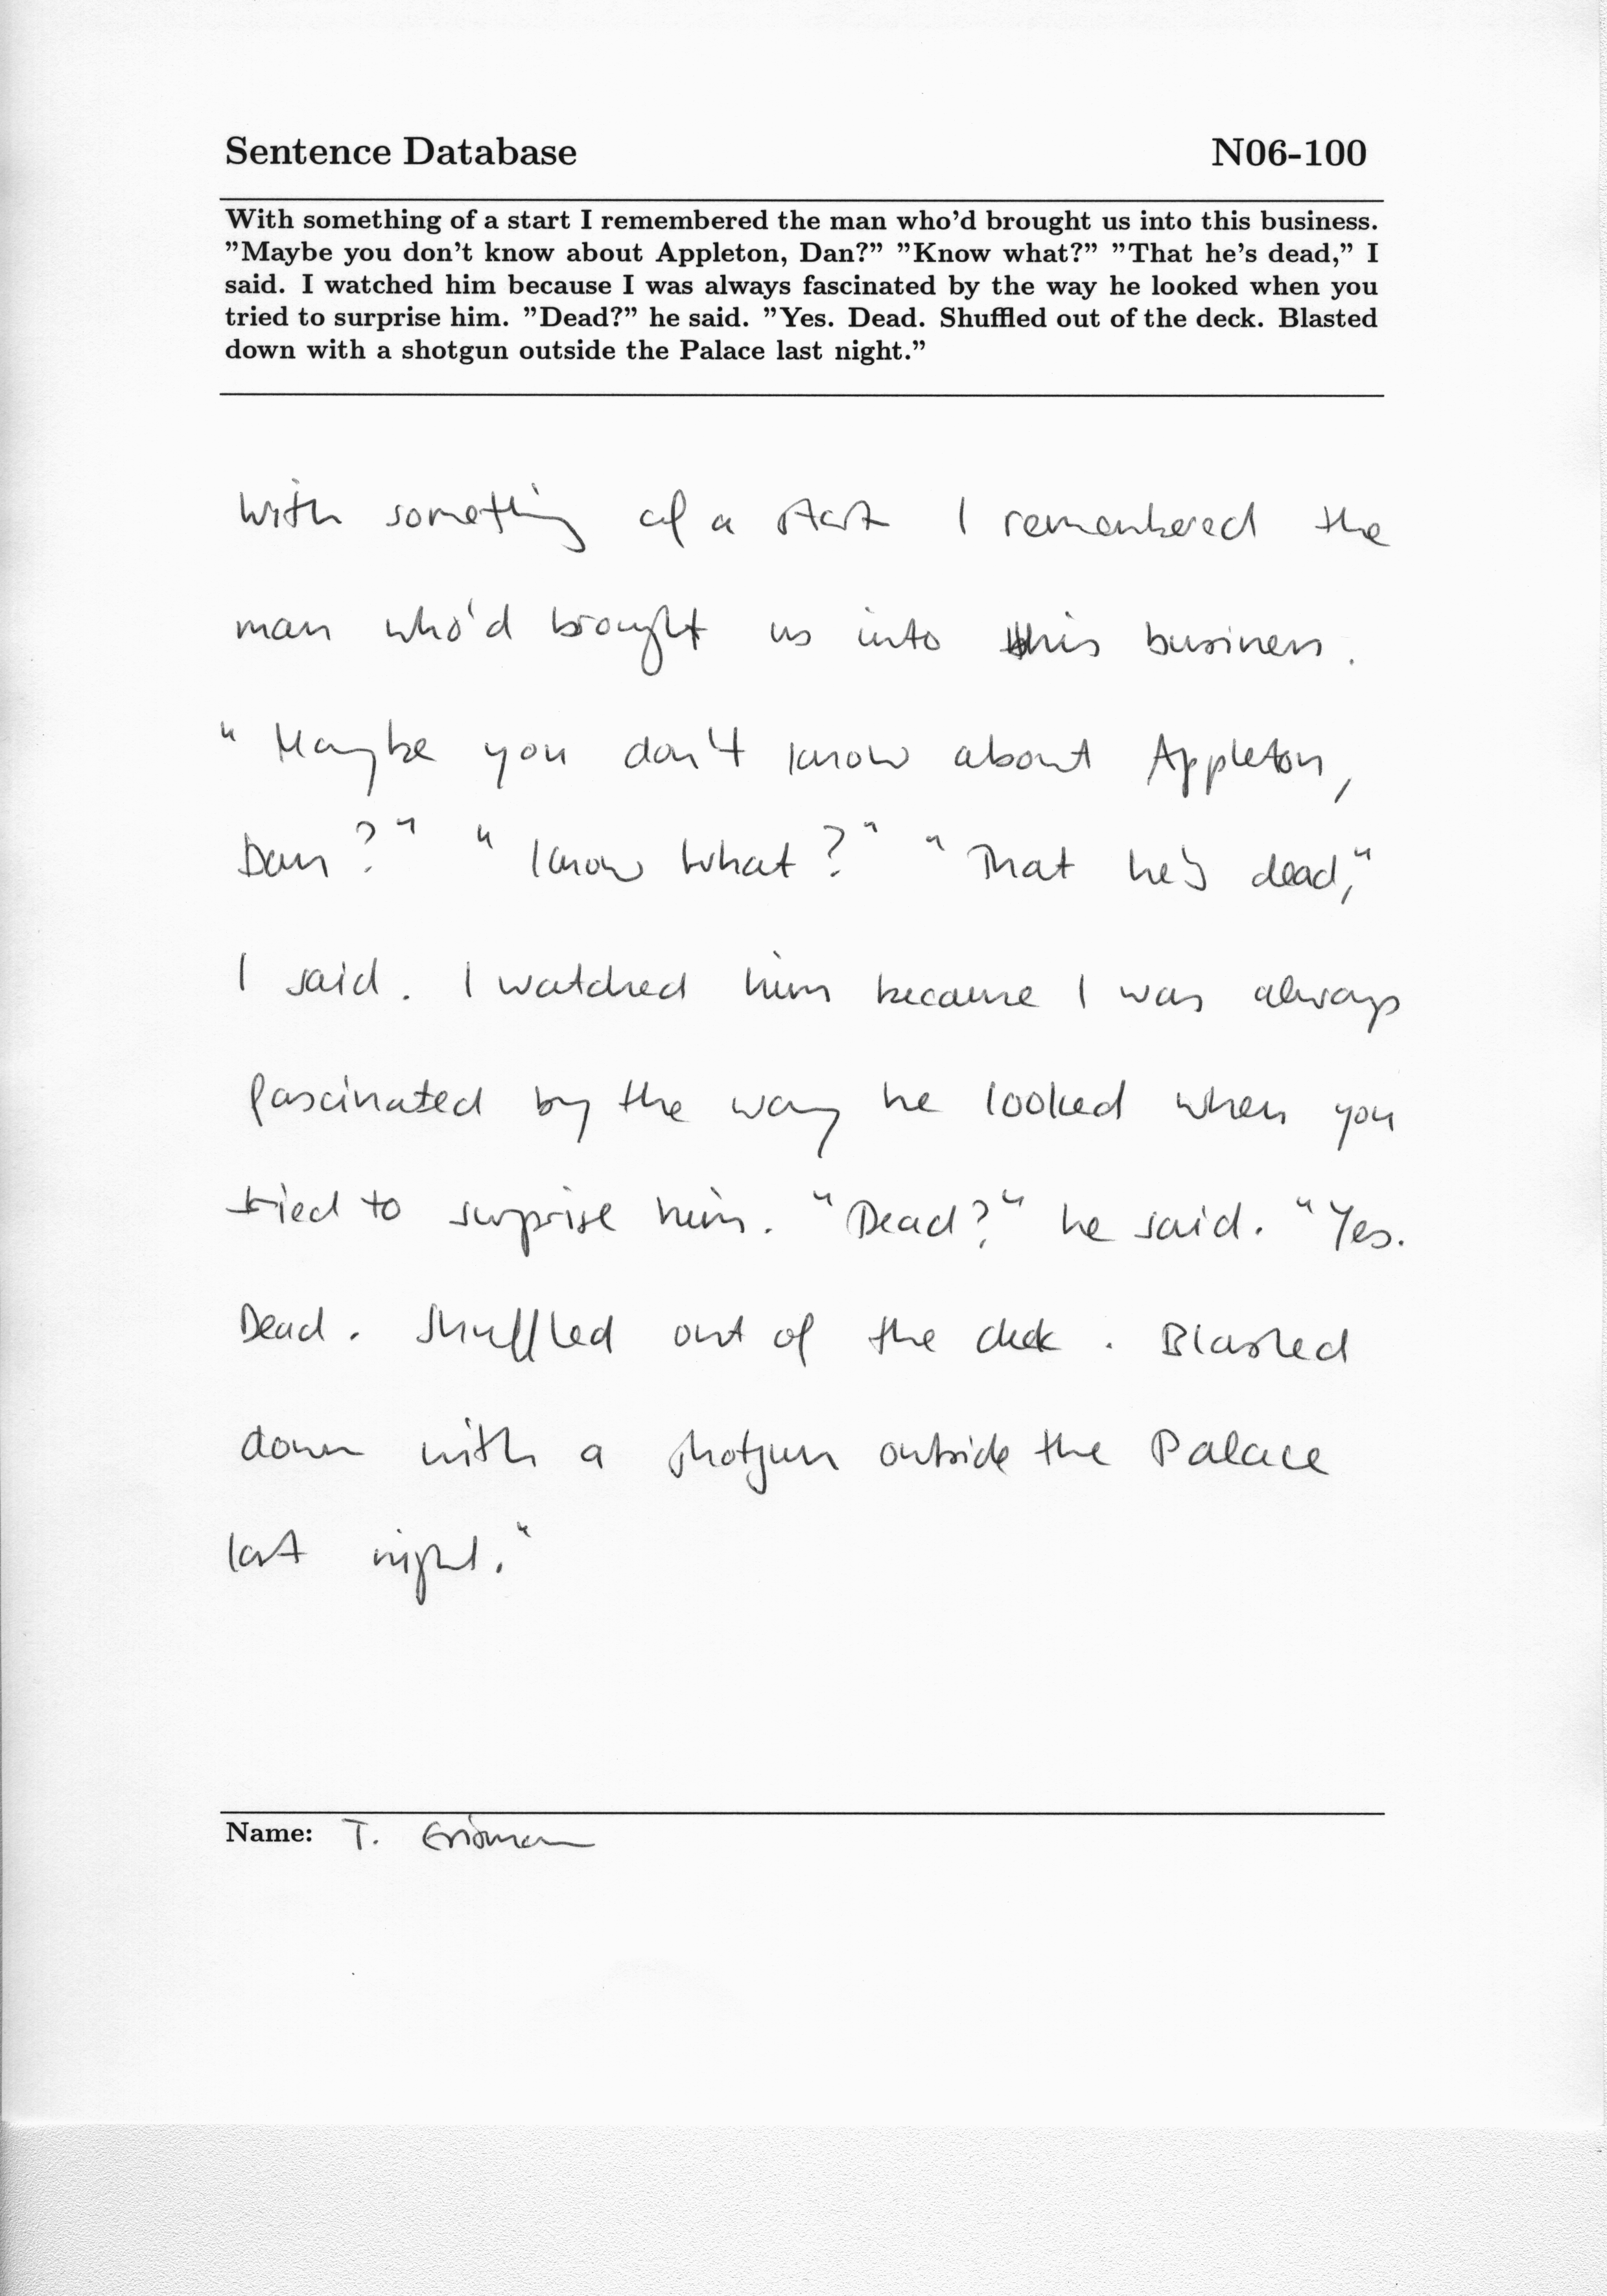 Sentence Database N06-100
With something of a start I remembered the man who'd brought us into this business.
"Maybe you don't know about Appleton, Dan?" "Know what?" "That he's dead," I
said. I watched him because I was always fascinated by the way he looked when you
tried to surprise him. "Dead?" he said. "Yes. Dead. Shuffled out of the deck. Blasted
down with a shotgun outside the Palace last night."
With something of a start I remembered the
man who'd brought us into this business.
"Maybe you don't know about Appleton,
Dan?" "Know what?" "That he's dead,"
I said. I watched him because I was always
fascinated by the way he looked when you
tried to surprise him. "Dead?" he said. "Yes.
Dead. Shuffled out of the deck. Blasted
down with a shotgun outside the Palace
last night."
Name: T.